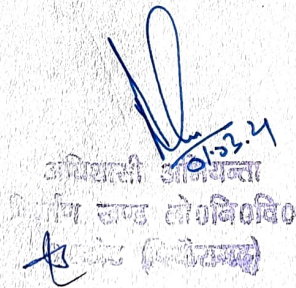 01.03.21
अधिशासी अभियन्ता
निर्माण खण्ड लो०नि०वि०
(पिथौरागढ़)